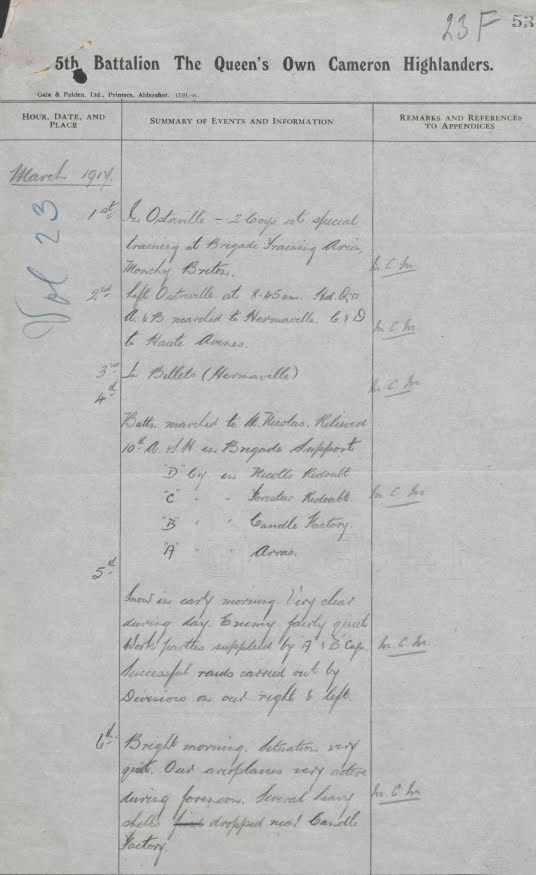 23 F 53
5th Battalion The Queen's Own Cameron Highlanders.
Gale & Polden, Ltd., Printers, Aldershot.
HOUR, DATE, AND PLACE
SUMMARY OF EVENTS AND INFORMATION
REMARKS AND REFERENCES TO APPENDICES
March 1917.
Vol 23
1st In Ostreville - 2 Coys at special
training at Brigade Training Area,
Monchy Breton.
2nd Left Ostreville at 8.45 am. Hd. Qrs
A & B marched to Hermaville. C & D
to Haute Avesnes.
3rd In Billets (Hermaville)
4th
Battn marched to St. Nicolas. Relieved
10th A & S H in Brigade Support
"D" Coy in Redoubt
"C" " " Forester Redoubt.
"B" " " Candle Factory.
"A" " " Arras.
5th
Snow in early morning. Very clear
during day. Enemy fairly quiet
Work parties supplied by "A" & "B" Coys.
Successful raids carried out by
Divisions on our right & left.
6th Bright morning. Situation very
quiet. Our aeroplanes very active
during forenoon. Several heavy
shells dropped near Candle
Factory.